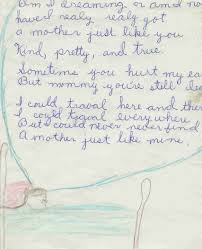 Am I dreaming or am I no
have I realy realy got
a mother just like you
Kind, pretty, and true.
Sometims you hurt my ea
But mommy you're still dea
I could traval here and ther
I could traval everywhere
But I could never never find
A mother just like mine.